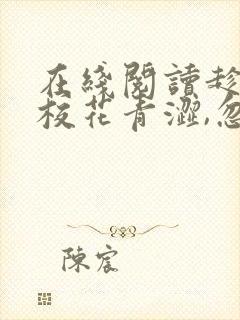 在綫閱讀趁
校花青澀,忽
陳宸